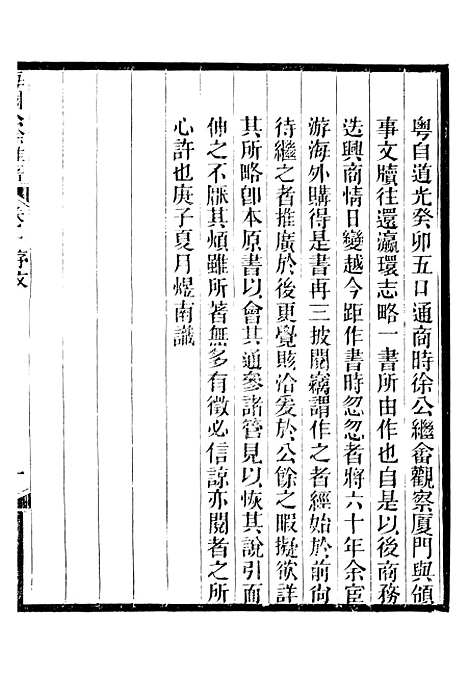 粵自道光癸卯五口通商時徐公繼畬觀察廈門與領
事文牘往還瀛環志略一書所由作也自是以後商務
迭興商情日變越今距作書時忽忽者將六十年余宦
游海外購得是書再三披閱竊謂作之者經始於前尙
待繼之者推廣於後更覺賅洽爰於公餘之暇擬欲詳
其所略卽本原書以會其通參諸管見以恢其說引而
伸之不厭其煩雖所著無多有徵必信諒亦閱者之所
心許也庚子夏月煜南識
序文